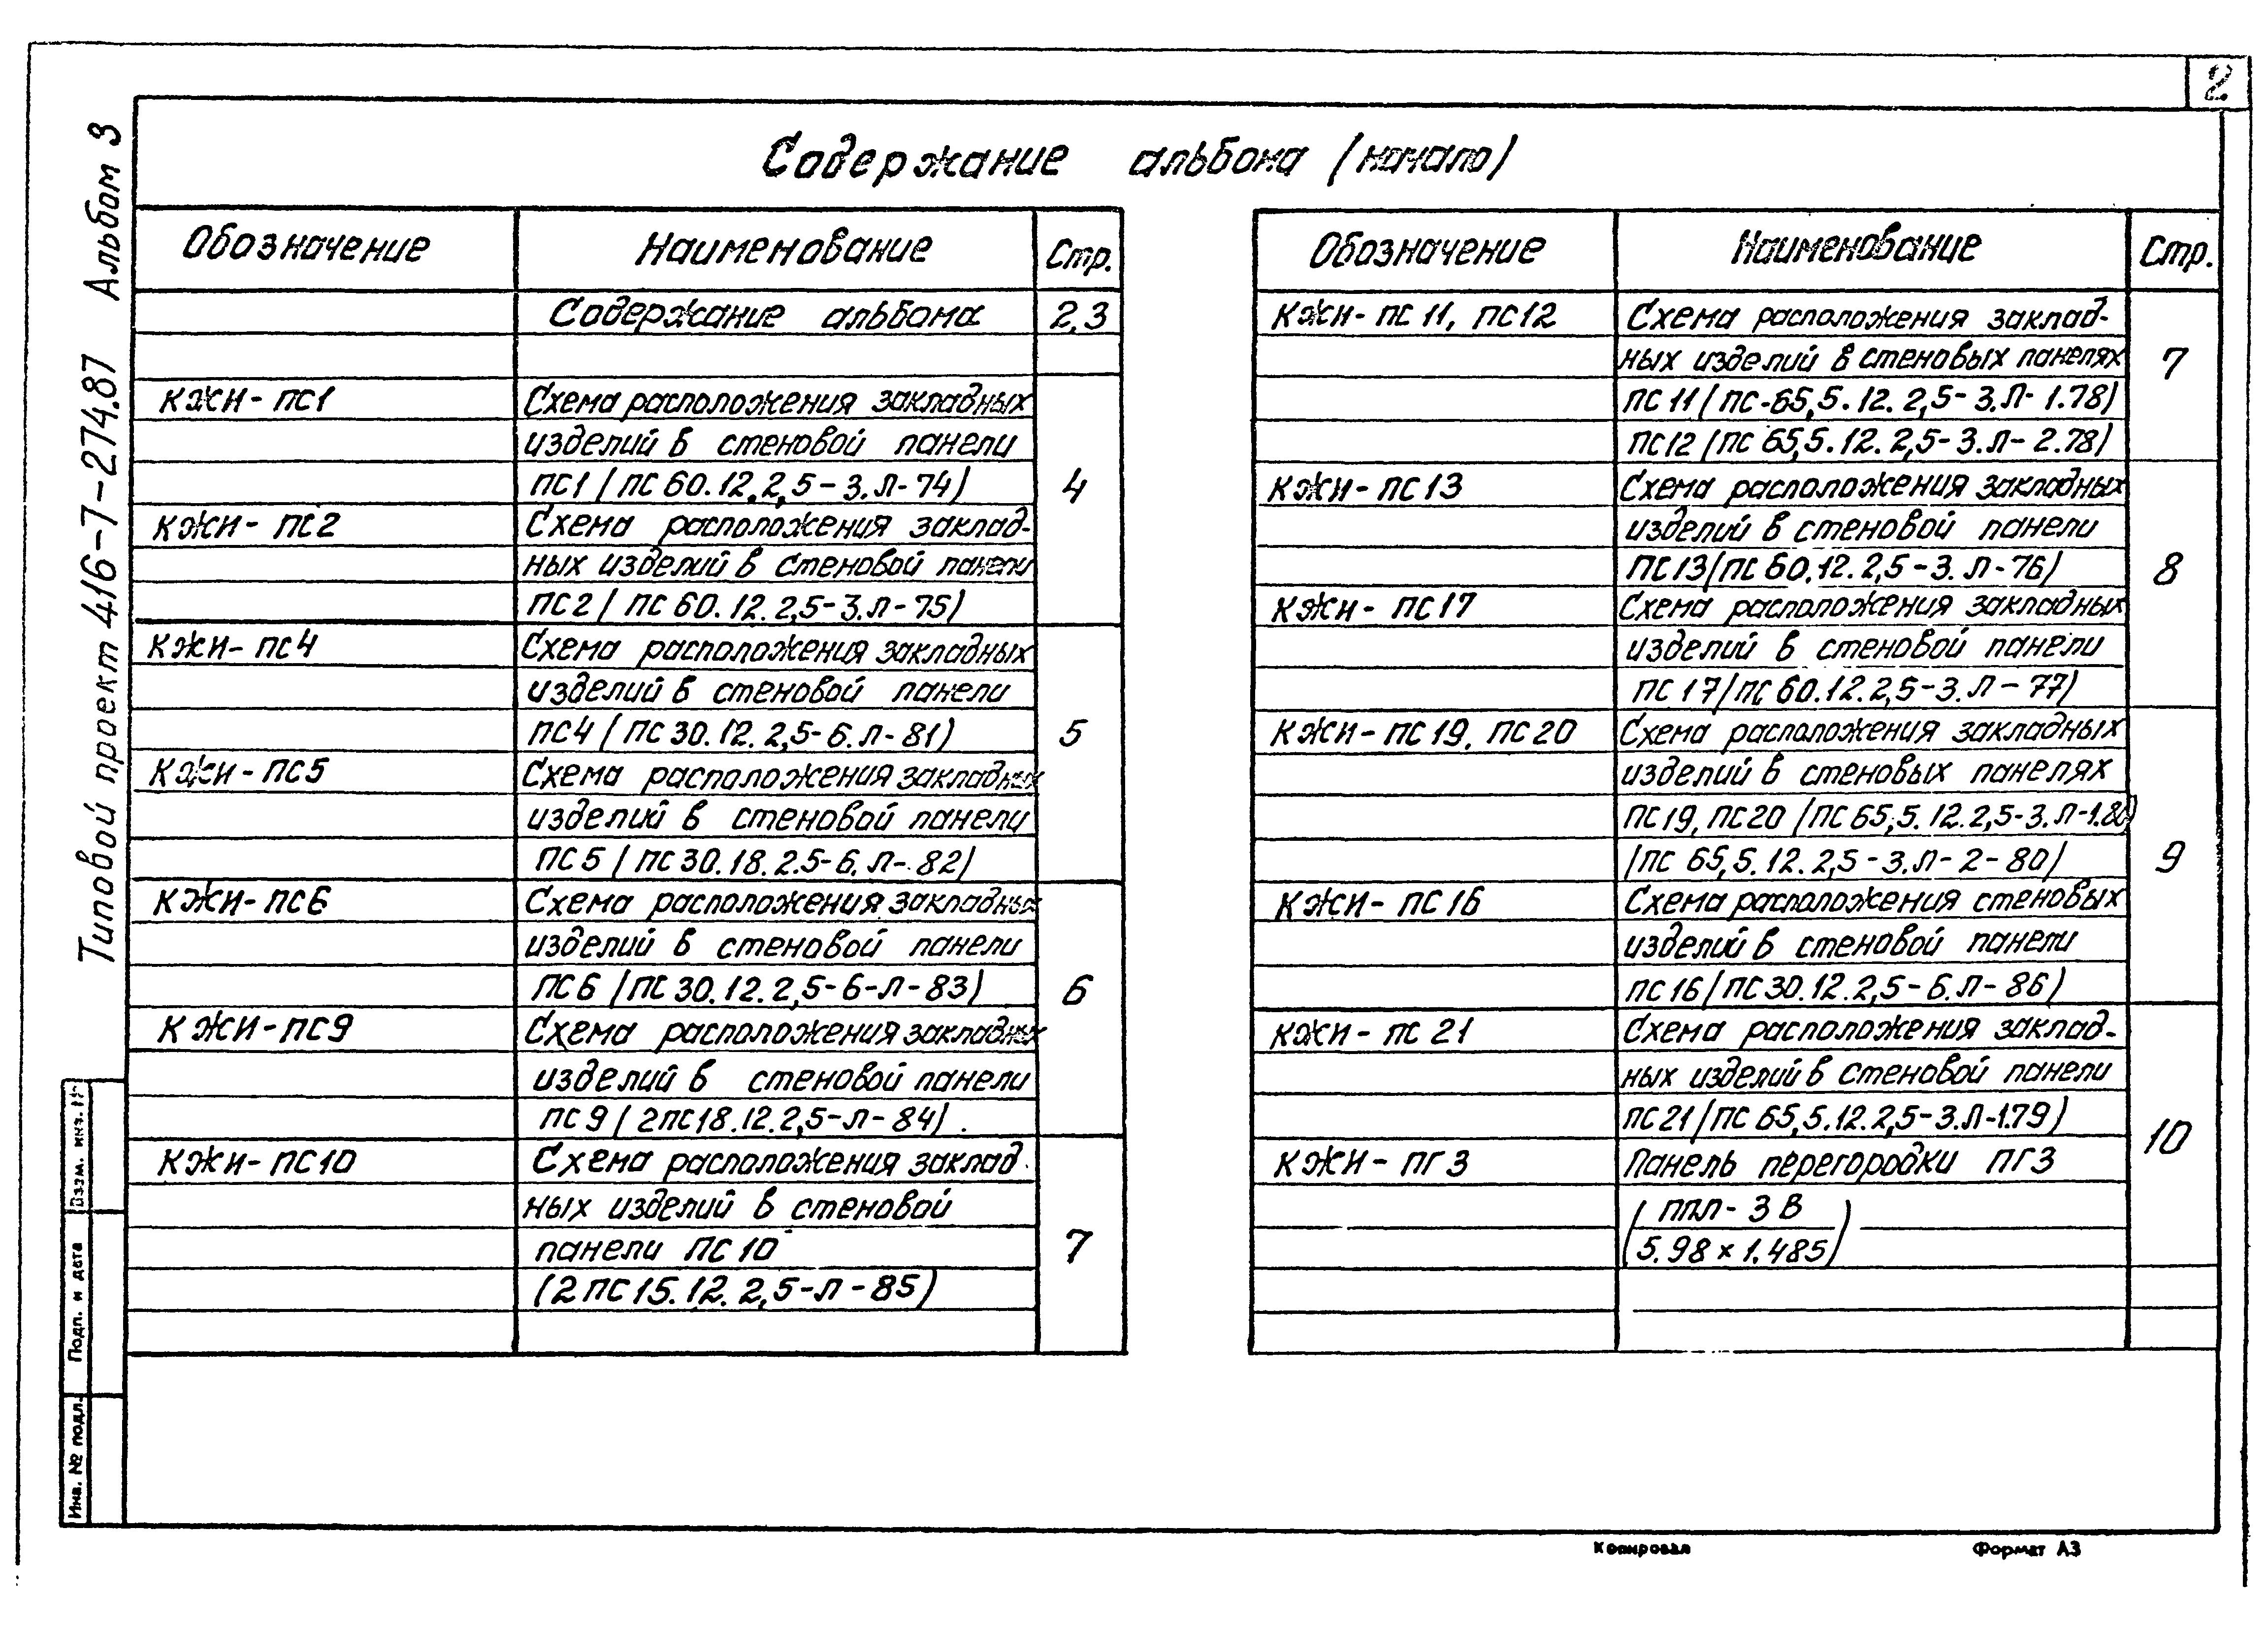 2
Содержание альбома (начало)
Типовой проект 416-7-274.87 Альбом 3
Обозначение Наименование Стр.
Содержание альбома 2,3
КЖИ-ПС1 Схема расположения закладных
изделий в стеновой панели
ПС1 (ПС 60.12.2,5-3.Л-74) 4
КЖИ-ПС2 Схема расположения заклад-
ных изделий в стеновой панели
ПС2 (ПС 60.12.2,5-3.Л-75)
КЖИ-ПС4 Схема расположения закладных
изделий в стеновой панели
ПС4 (ПС 30.12.2,5-6.Л-81) 5
КЖИ-ПС5 Схема расположения закладных
изделий в стеновой панели
ПС5 (ПС 30.18.2.5-6.Л-82)
КЖИ-ПС6 Схема расположения закладных
изделий в стеновой панели
ПС6 (ПС 30.12.2,5-6-Л-83) 6
КЖИ-ПС9 Схема расположения закладных
изделий в стеновой панели
ПС9 (2ПС18.12.2,5-Л-84).
КЖИ-ПС10 Схема расположения заклад-
ных изделий в стеновой
панели ПС10 7
(2ПС15.12.2,5-Л-85)
Обозначение Наименование Стр.
КЖИ-ПС11, ПС12 Схема расположения заклад-
ных изделий в стеновых панелях 7
ПС11 (ПС-65,5.12.2,5-3.Л-1.78)
ПС12 (ПС 65,5.12.2,5-3.Л-2.78)
КЖИ-ПС13 Схема расположения закладных
изделий в стеновой панели
ПС13 (ПС 60.12.2,5-3.Л-76) 8
КЖИ-ПС17 Схема расположения закладных
изделий в стеновой панели
ПС17 (ПС 60.12.2,5-3.Л-77)
КЖИ-ПС19, ПС20 Схема расположения закладных
изделий в стеновых панелях
ПС19, ПС20 (ПС65,5.12.2,5-3.Л-1.80)
(ПС 65,5.12.2,5-3.Л-2-80) 9
КЖИ-ПС16 Схема расположения стеновых
изделий в стеновой панели
ПС16 (ПС30.12.2,5-6.Л-86)
КЖИ-ПС21 Схема расположения заклад-
ных изделий в стеновой панели
ПС21 (ПС 65,5.12.2,5-3.Л-1.79) 10
КЖИ-ПГ3 Панель перегородки ПГ3
(ППЛ-3В
5.98×1.485)
Взам. инв. №
Подп. и дата
Инв. № подл.
Копировал Формат А3